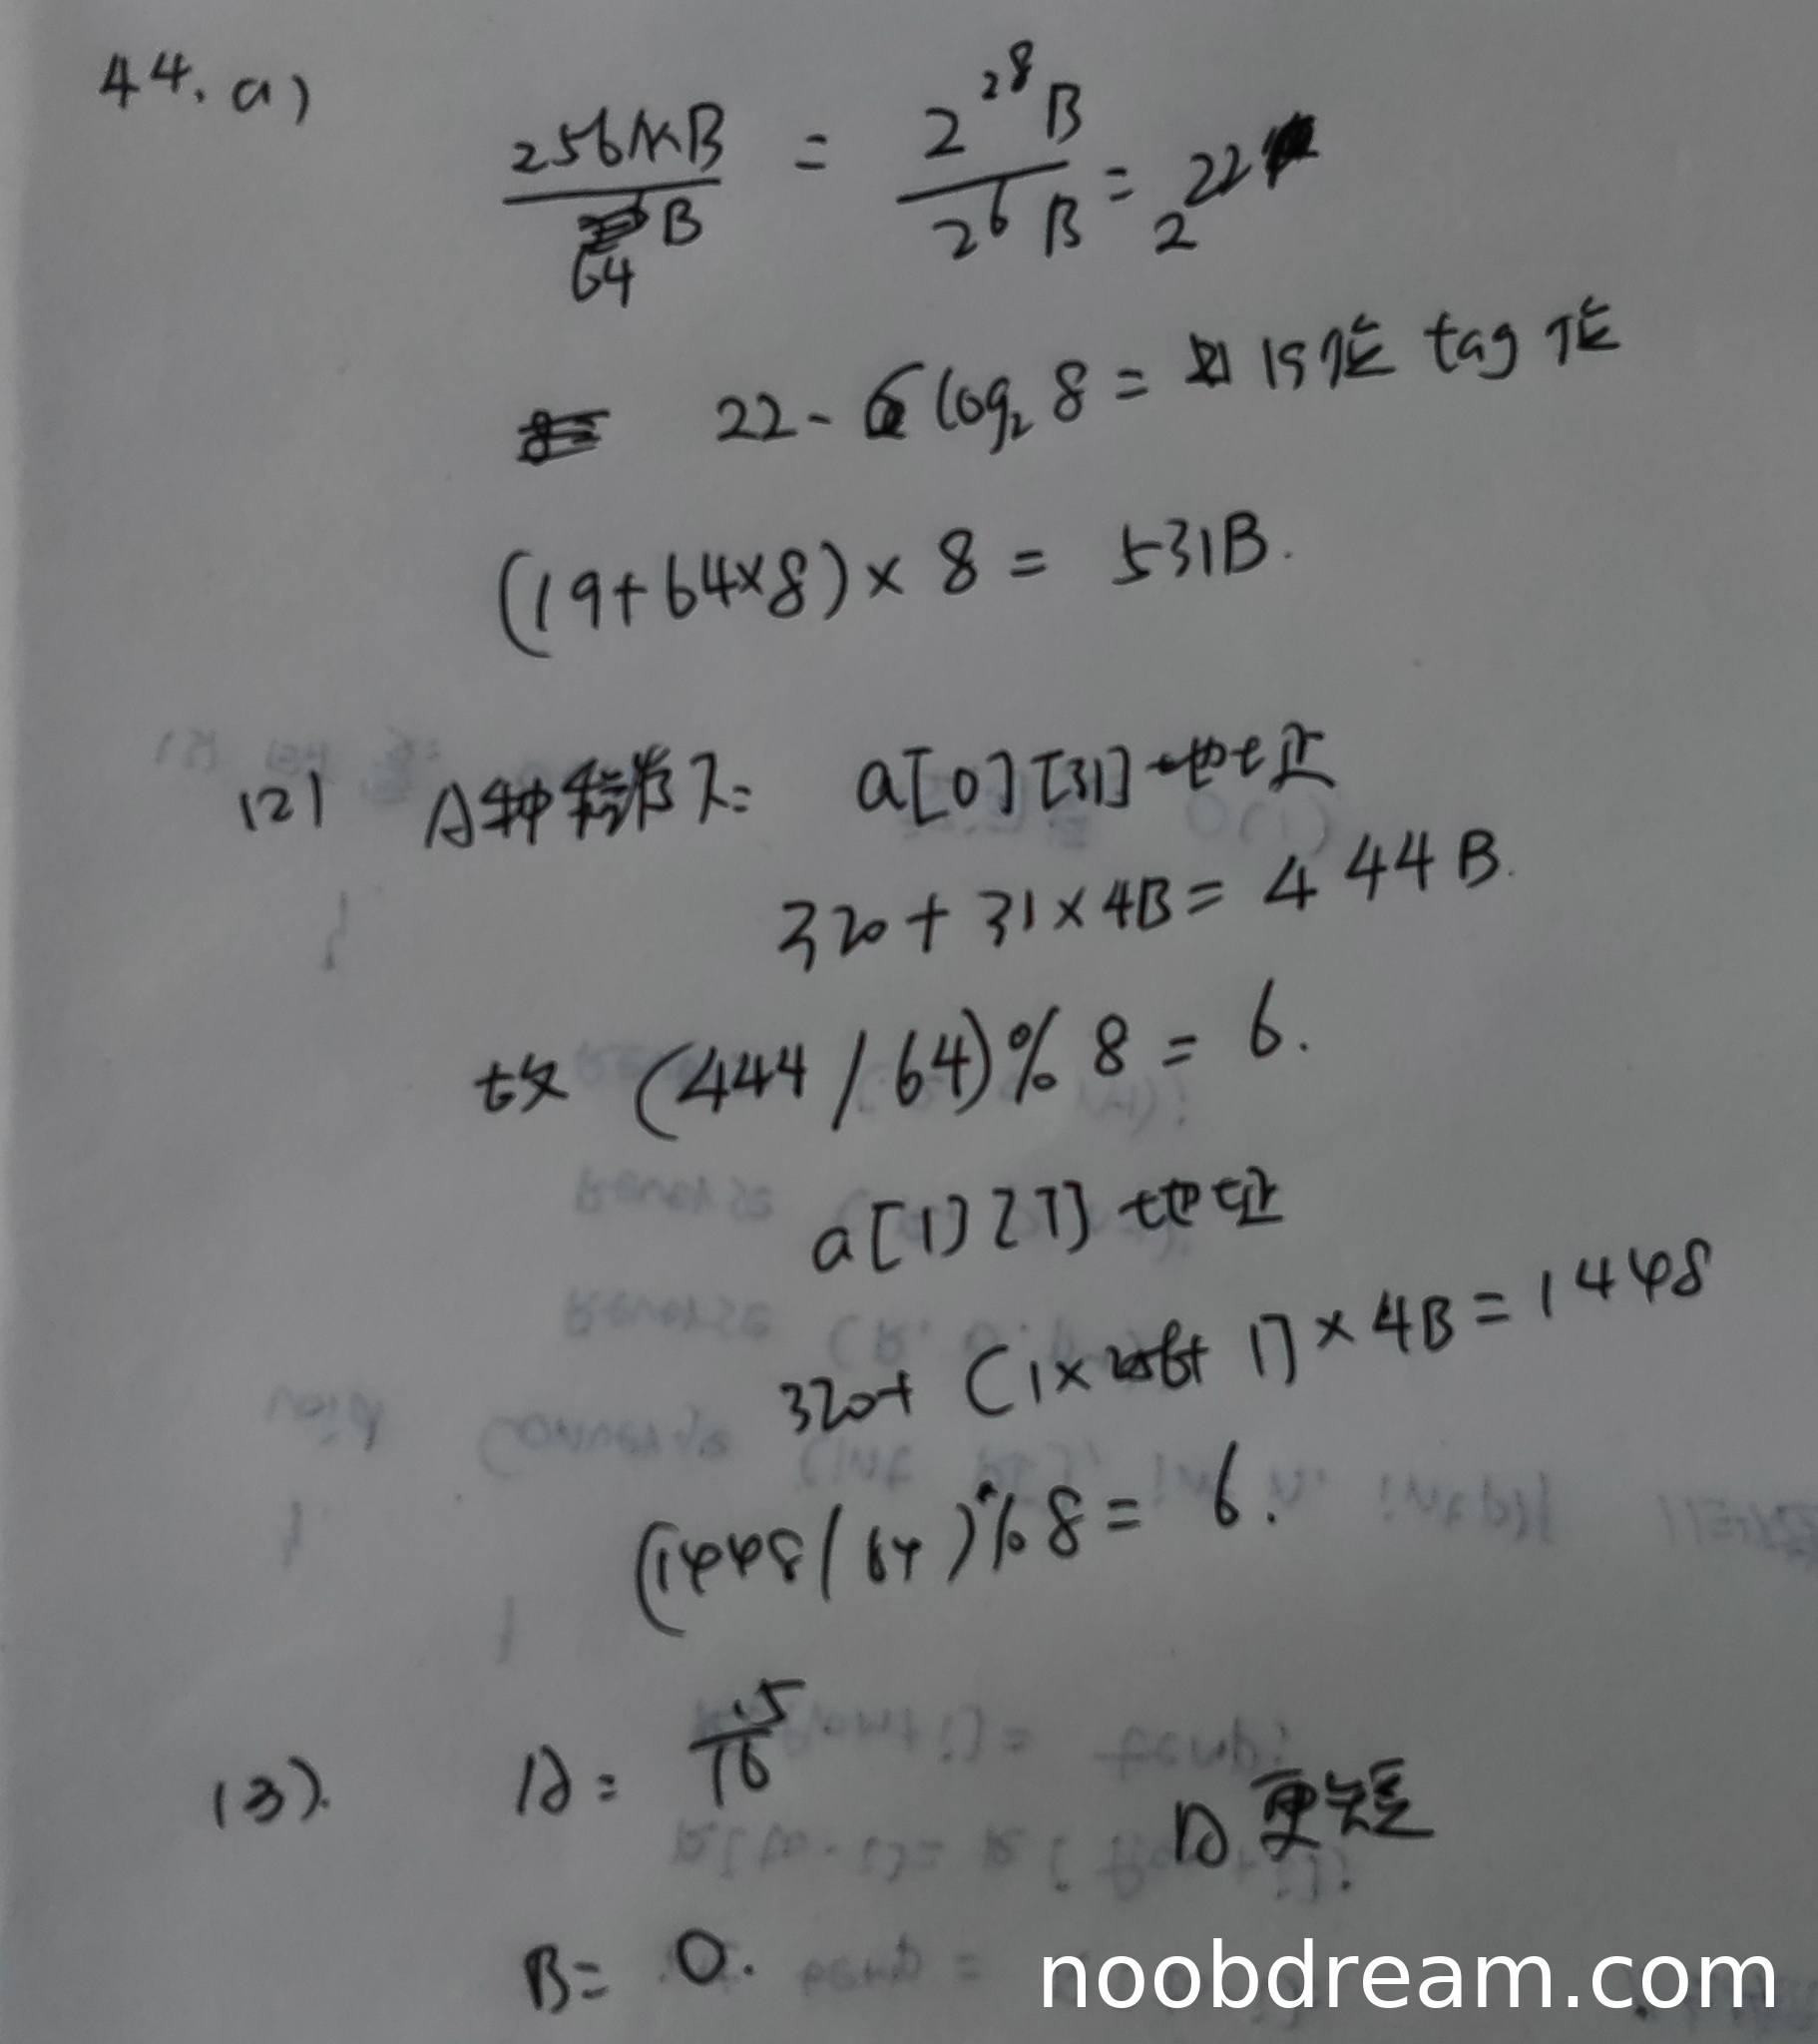 44. (1)
256MB / 64 B = 2^28 B / 2^6 B = 2^22
22 - log₂ 8 = 19位 tag 位
(19+64×8)×8 = 531B.
(2) A种 a[0][31]地址
320 + 31×4B = 444B.
故 (444/64)%8 = 6.
a[1][1] 地址
320+ (1×256+1)×4B = 1448
(1448/64)%8 = 6.
(3). A: 15/16
A 更短
B= 0.
noobdream.com